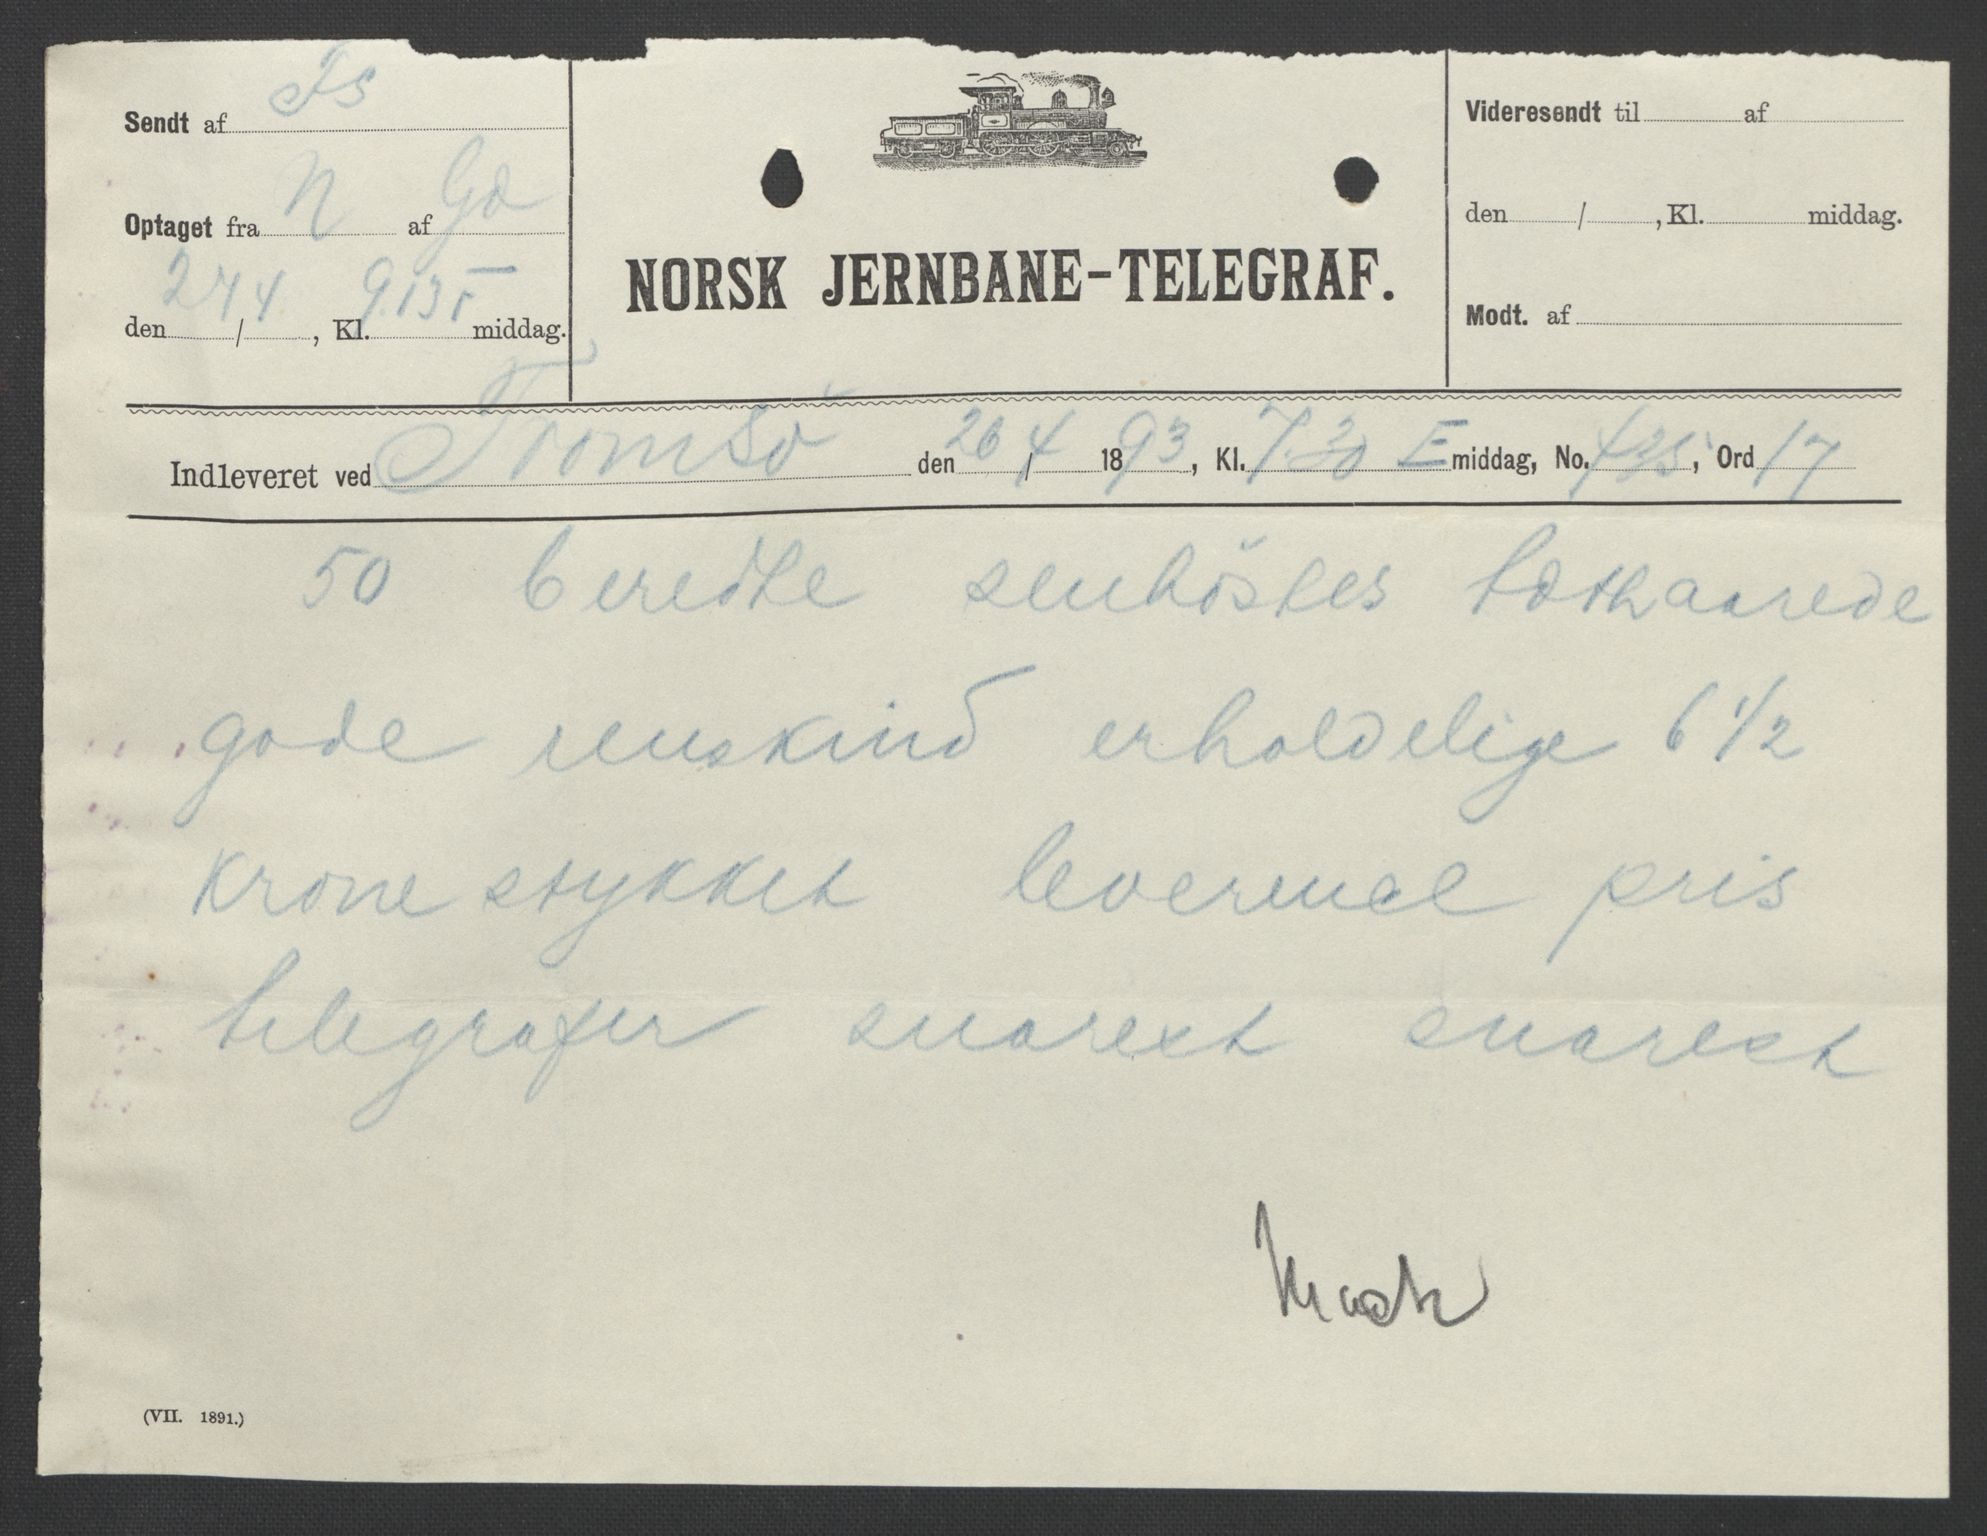 Sendt af Fs
Optaget fra N af Gd
den 27/4, Kl. 9.135 middag.
NORSK JERNBANE-TELEGRAF.
Videresendt til af
den / , Kl. middag.
Modt. af
Indleveret ved Tromsö den 26/4 1893, Kl. 7.30 E middag, No. 435, Ord 17
50 beredte senhöstes tæthaarede
gode renskind erholdelige 6 1/2
krone stykket leverence pris
telegrafer snarest snarest
Mack
(VII. 1891.)